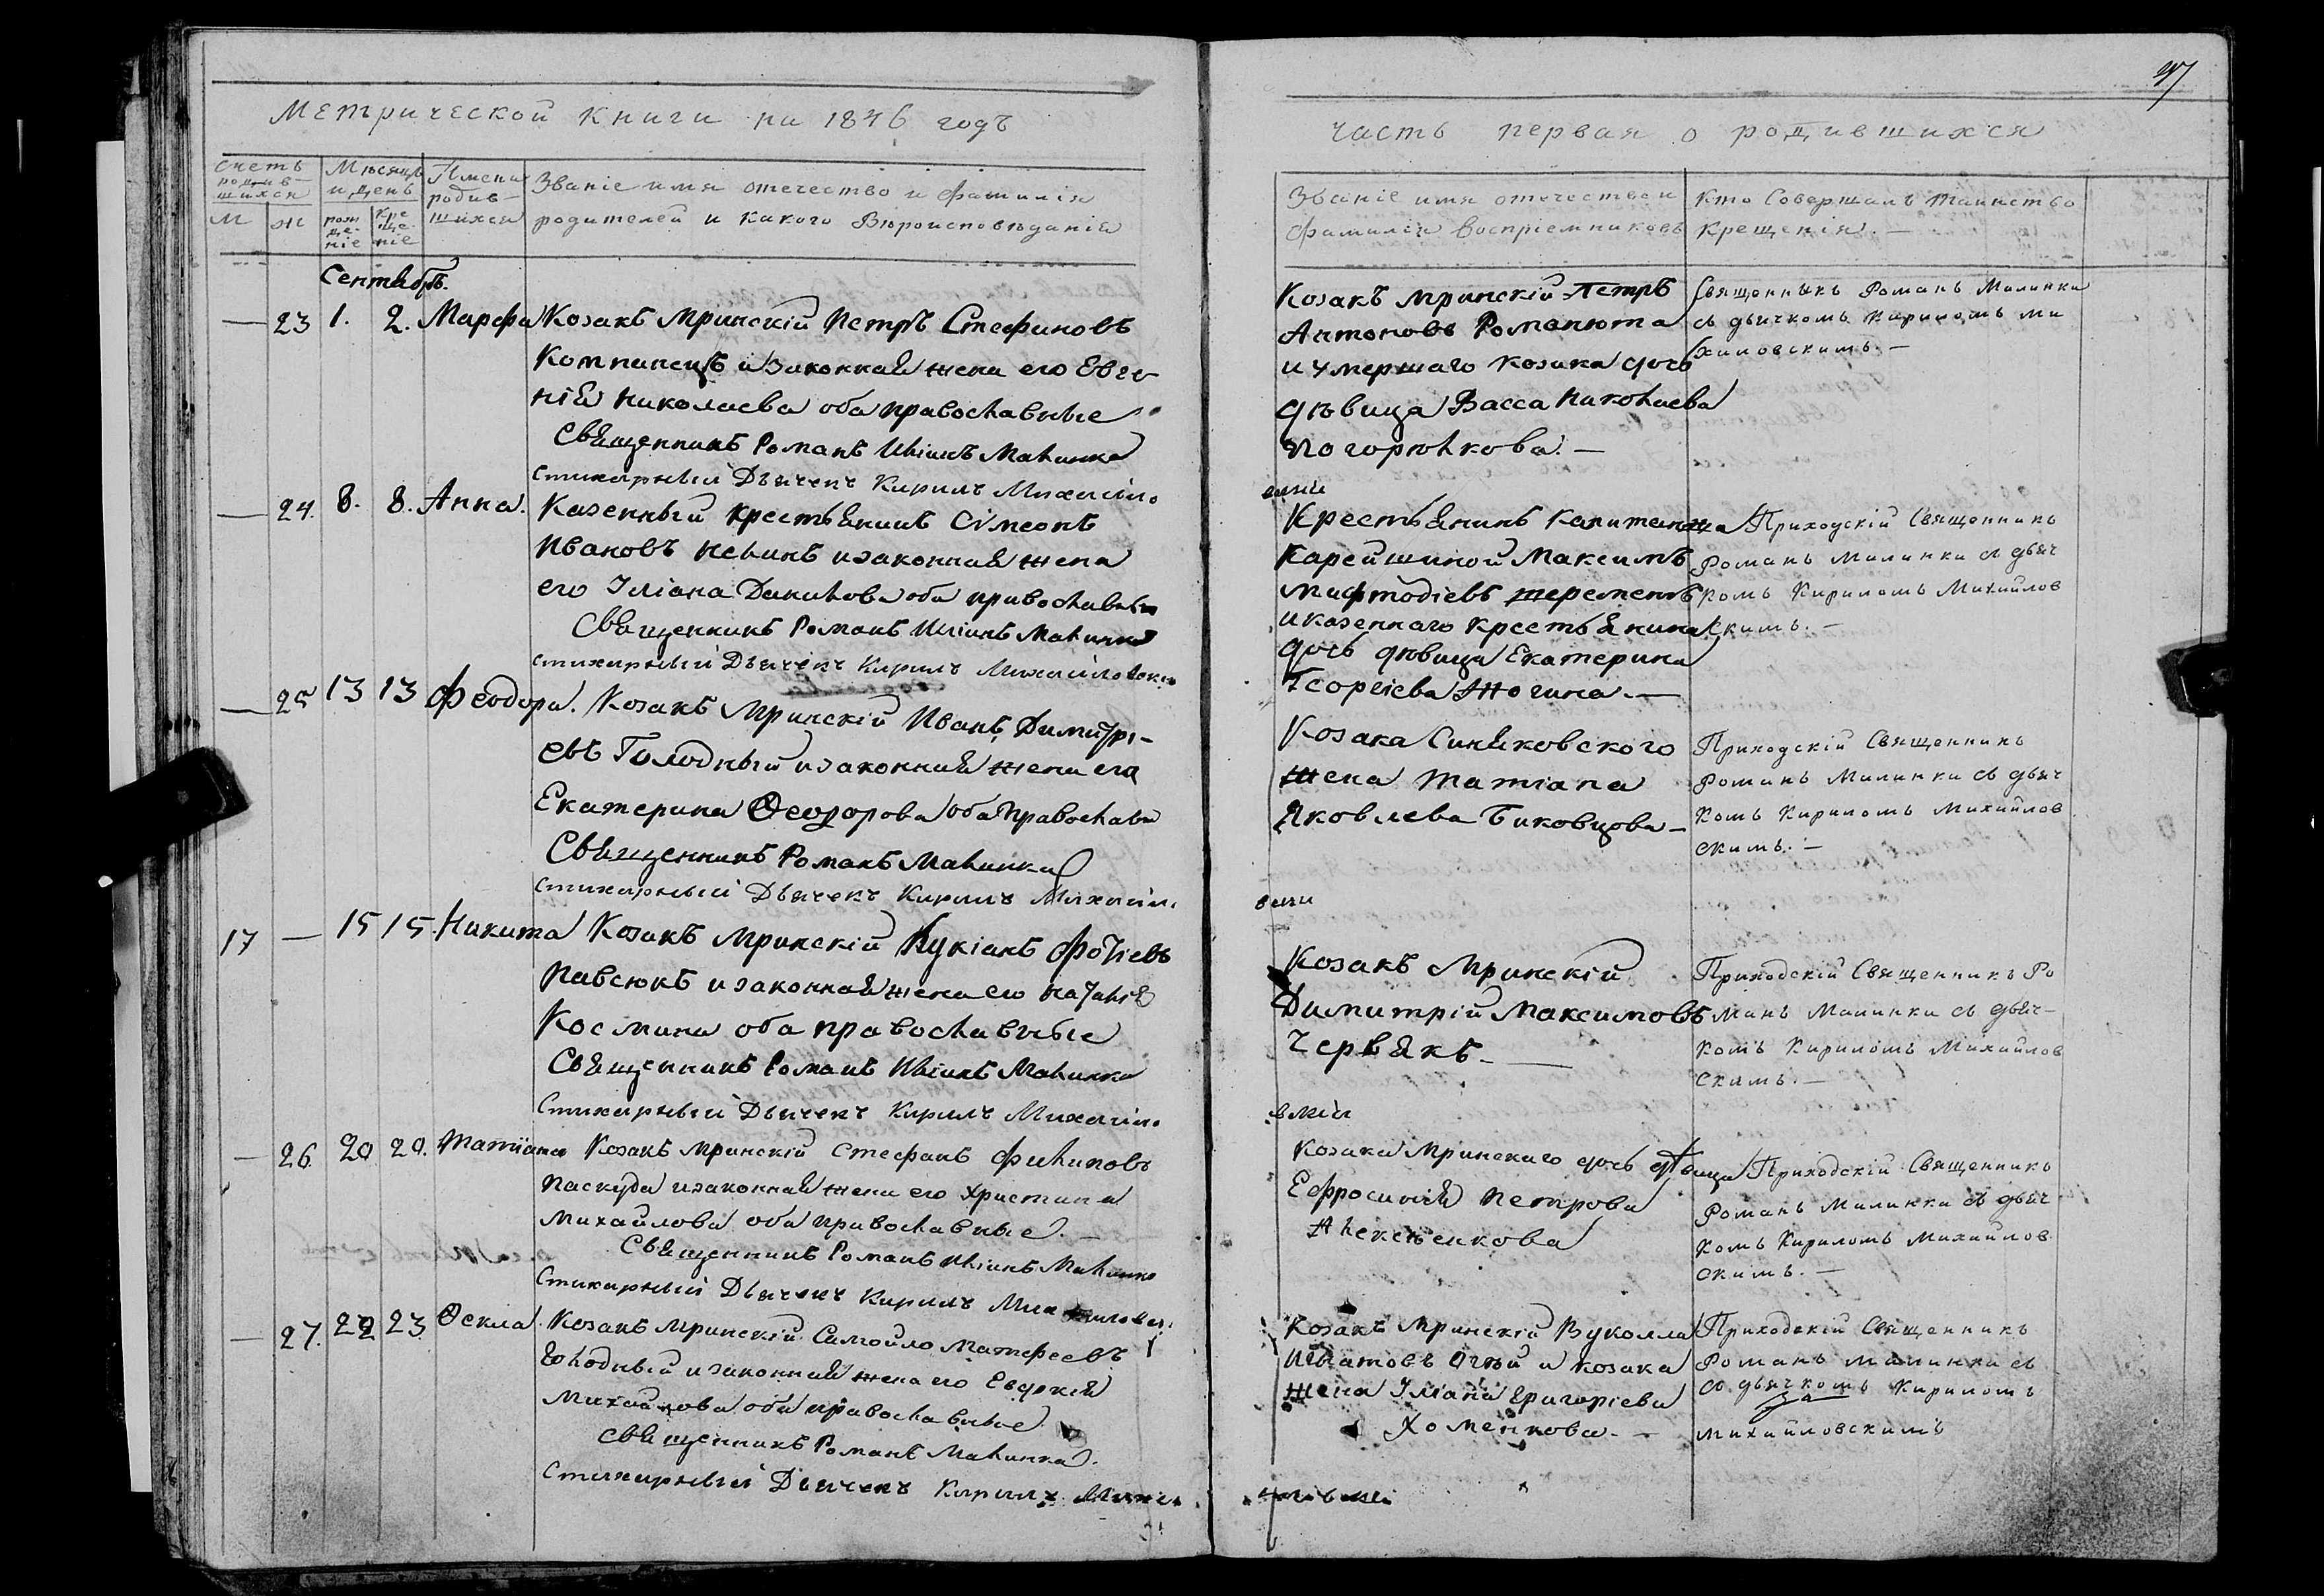 Метрической книги на 1846 годъ
Счетъ родив-шихся
М ж
Мѣсяцъ и день
рож-де-ніе
Кре-ще-ніе
Имена родив-шихся
Званіе имя отечество и фамилія
родителей и какого Вѣроисповѣданія
Сентябрь.
— 23 1. 2. Марфа Козакъ Мринскій Петръ Стефановъ
Компанецъ и Законная жена его Евге-
нія Николаева оба православные
Священникъ Романъ Иліинъ Малинка
Стихарный Дьячекъ Кирилъ Михайло
— 24. 8. 8. Анна. Казенный крестьянинъ Сімеонъ
Ивановъ и законная жена
его Іуліана Данилова оба православные
Священникъ Романъ Иліинъ Малинка
стихарный Дьячекъ Кирилъ Михайловскій
— 25 13 13 Феодора. Козакъ Мринскій Иванъ Димитрі-
евъ Голодный и законная жена его
Екатерина Ѳеодорова оба православ
Священникъ Романъ Малинка
Стихарный Дьячекъ Кирилъ Михайл
17 — 15 15. Никита Козакъ Мринскій Лукіанъ Фотіевъ
Павсюкъ и законная жена его Наталія
Космина оба православные
Священникъ Романъ Иліинъ Малинка
Стихарный Дьячекъ Кирилъ Михайло
— 26. 20 20. Татіана Козакъ Мринскій Стефанъ Филиповъ
Паскуда и законная жена его Христина
Михайлова оба православные. —
Священникъ Романъ Иліинъ Малинка
Стихарный Дьячекъ Кирилъ
— 27. 22 23 Ѳекла. Козакъ Мринскій Самойло Матфеевъ
Голодный и законная жена его Евдокія
Михайлова оба православные
священникъ Романъ Малинка.
Стихарный Дьячекъ Кирилъ Михай
97
часть первая о родившихся
Званіе имя отечество и
фамилія Воспріемниковъ
Кто Совершалъ таинство
крещенія. —
Козакъ Мринскій Петръ
Антоновъ Романюта
и умершаго козака дочь
дѣвица Васса Николаева
Погорѣлкова. —
Священникъ Романъ Малинка
съ дьячкомъ Кириломъ Ми
хайловскимъ. —
Крестьянинъ Капитанша
Карейшиной Максимъ
Мифтодіевъ
и казеннаго крестьянина
дочь дѣвица Екатерина
Георгіева —
Приходскій Священникъ
Романъ Малинка съ дьяч
комъ Кириломъ Михайлов
скимъ. —
Козака Синяковского
жена Татіана
Яковлева Биковцова —
Приходскій Священникъ
Романъ Малинка съ дьяч
комъ Кириломъ Михайлов
скимъ. —
Козакъ Мринскій
Димитрій Максимовъ
Червякъ. —
Приходскій Священникъ Ро
манъ Малинка съ дьяч-
комъ Кириломъ Михайлов
скимъ. —
Козака Мринскаго дочь дѣвица
Ефросинія Петрова
Алексѣенкова
Приходскій Священникъ
Романъ Малинка съ дьяч
комъ Кириломъ Михайлов
скимъ. —
Козакъ Мринскій Вуколла
Игнатовъ и козака
жена Іуліана Григоріева
Хоменкова. —
Приходскій Священникъ
Романъ Малинка съ
съ дьячкомъ Кириломъ
Михайловскимъ